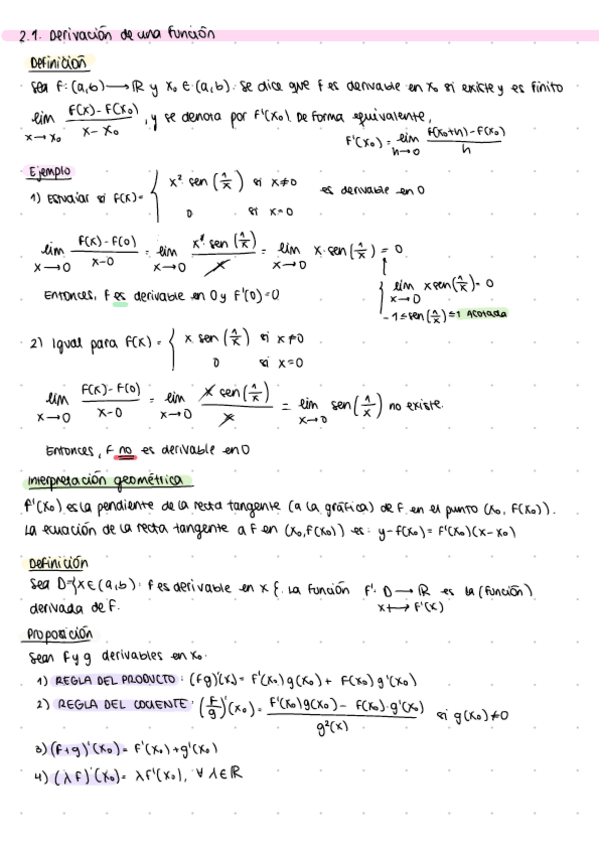 2.1. Derivación de una función
Definición
Sea f: (a,b) → ℝ y x₀ ∈ (a,b). Se dice que f es derivable en x₀ si existe y es finito
lim x→x₀ (f(x) - f(x₀))/(x - x₀), y se denota por f'(x₀). De forma equivalente,
f'(x₀) = lim h→0 (f(x₀+h) - f(x₀))/h
Ejemplo
1) Estudiar si f(x) = { x² sen(1/x) si x≠0
0 si x=0 es derivable en 0
lim x→0 (f(x) - f(0))/(x-0) = lim x→0 x² sen(1/x)/x = lim x→0 x · sen(1/x) = 0
Entonces, f es derivable en 0 y f'(0)=0
{ lim x→0 x sen(1/x) = 0
-1 ≤ sen(1/x) ≤ 1 Acotada
2) Igual para f(x) = { x sen(1/x) si x≠0
0 si x=0
lim x→0 (f(x) - f(0))/(x-0) = lim x→0 x sen(1/x)/x = lim x→0 sen(1/x) no existe.
Entonces, f no es derivable en 0
Interpretación geométrica
f'(x₀) es la pendiente de la recta tangente (a la gráfica) de f en el punto (x₀, f(x₀)).
La ecuación de la recta tangente a f en (x₀, f(x₀)) es: y - f(x₀) = f'(x₀)(x - x₀)
Definición
Sea D={x∈(a,b): f es derivable en x}. La función f': D → ℝ es la (función)
derivada de f. x ↦ f'(x)
Proposición
Sean f y g derivables en x₀.
1) REGLA DEL PRODUCTO: (fg)'(x) = f'(x₀)g(x₀) + f(x₀)g'(x₀)
2) REGLA DEL COCIENTE: (f/g)'(x₀) = (f'(x₀)g(x₀) - f(x₀)·g'(x₀))/g²(x) si g(x₀)≠0
3) (f+g)'(x₀) = f'(x₀)+g'(x₀)
4) (λf)'(x₀) = λf'(x₀), ∀ λ∈ℝ